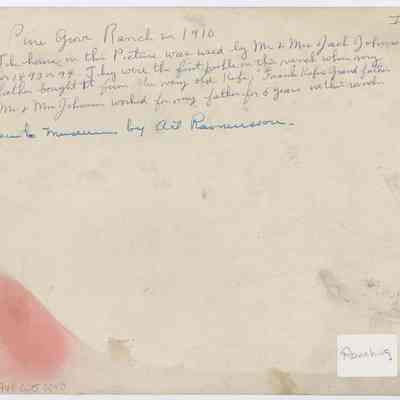 Pine Grove Ranch in 1910
The house in this Picture was used by Mr & Mrs Jack Johnson
in 1893 or 94. They were the first people on this ranch when my
father bought it from the very old Kofe, Frank Kofes Grand father
Mr & Mrs Johnson worked for my father for 6 years on this ranch
to Museum by Art Rasmusson.
Ranching